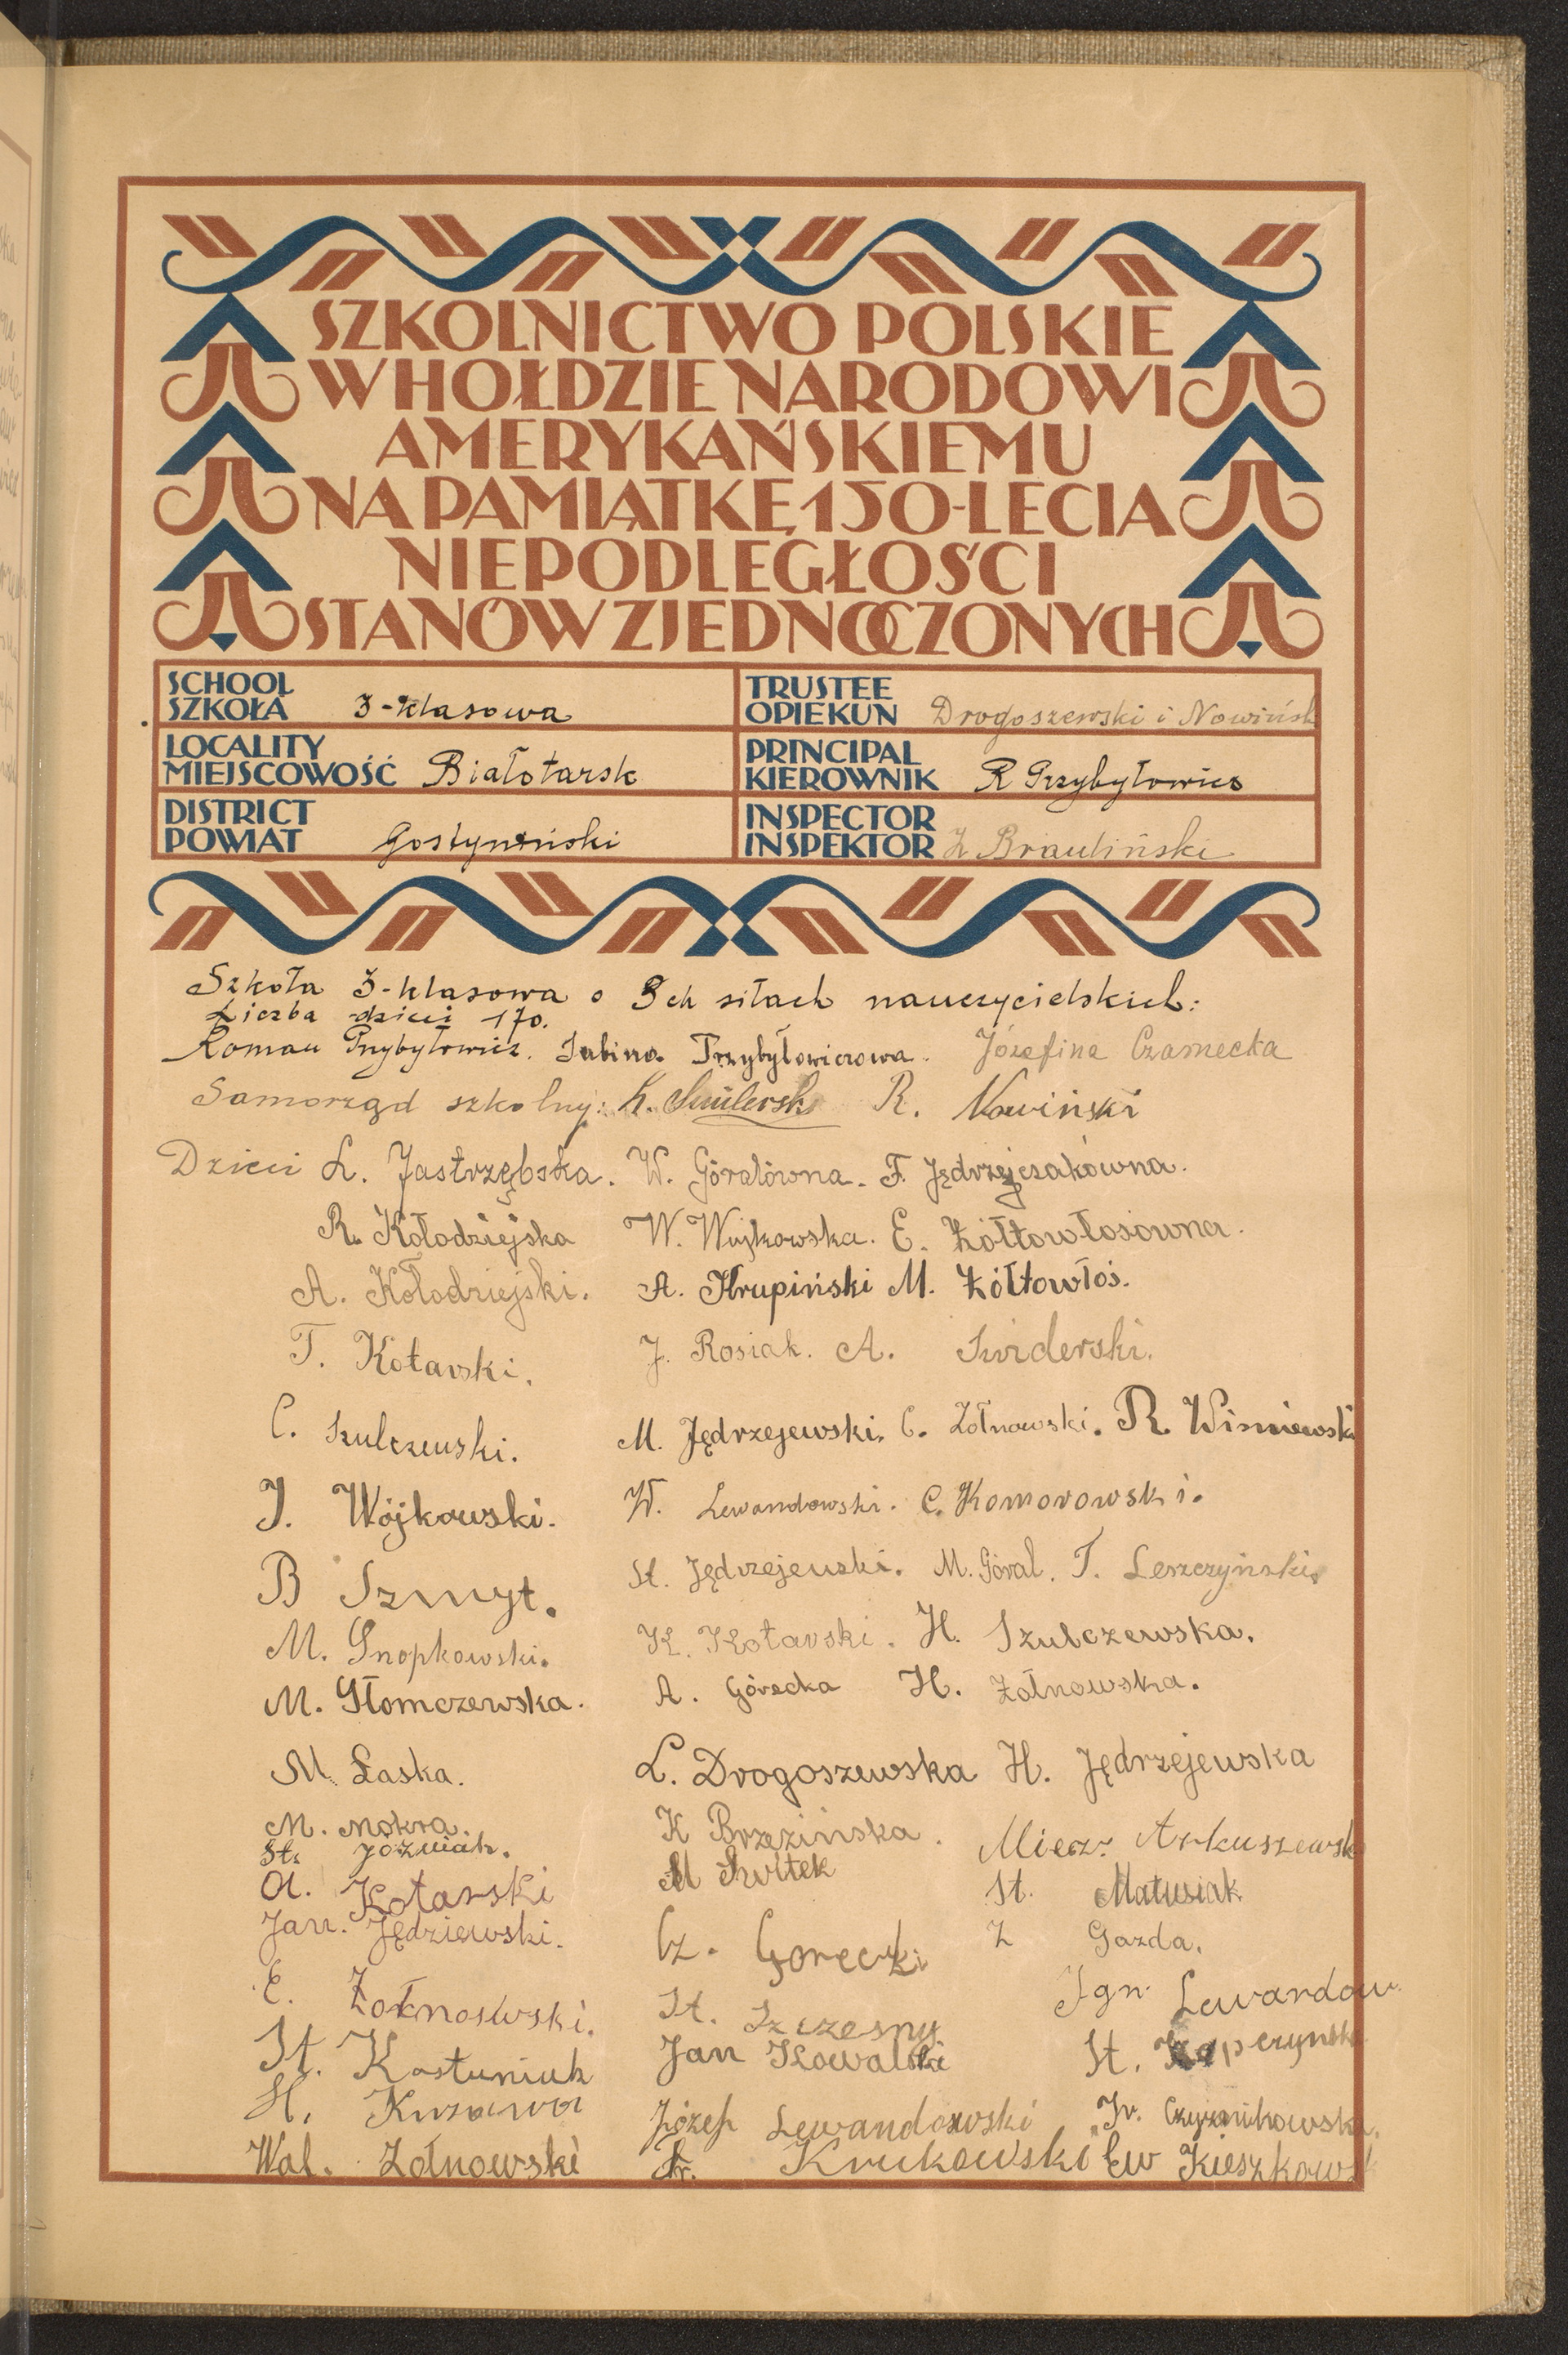 SZKOLNICTWO POLSKIE
W HOŁDZIE NARODOWI
AMERYKAŃSKIEMU
NA PAMIĄTKĘ 150-LECIA
NIEPODLEGŁOŚCI
STANÓW ZJEDNOCZONYCH
SCHOOL
SZKOŁA 3-klasowa
TRUSTEE
OPIEKUN Drogoszewski i Nowińsk
LOCALITY
MIEJSCOWOŚĆ Białotarsk
PRINCIPAL
KIEROWNIK R Przybyłowicz
DISTRICT
POWIAT Gostyniński
INSPECTOR
INSPEKTOR Brauliński
Szkoła 3-klasowa o 3ch siłach nauczycielskich:
Liczba dzieci 170.
Roman Przybyłowicz. Sabina Przybyłowiczowa. Józefina Czarnecka
Samorząd szkolny: R. Nowiński
Dzieci L. Jastrzębska. W. Góralówna. F. Jędrzejczakówna.
R. Kołodziejska W. Wojkowska. E. Żółtowłosówna.
A. Kołodziejski. A. Krupiński M. Żółtowłos.
T. Kotarski. J. Rosiak. A. Swiderski.
C. Szulczewski. M. Jędrzejewski. C. Żołnowski. R. Wisniewski
J. Wójkowski. W. Lewandowski. C. Komorowski.
B Szmyt. St. Jędrzejewski. M. Góral. T. Leszczyński.
M. Snopkowski. K. Kotarski. H. Szulczewska.
M. Słomczewska. A. Górecka H. Żołnowska.
M. Łaska. L. Drogoszewska H. Jędrzejewska
M. Mokra. K Brzezińska. Miecz. Arkuszewsk
St. Jóżwiak. M Szvltek
A. Kotarski St. Matusiak
Jan. Jędziewski. Cz. Gorecki Z Gazda.
E. Żołnoswski. St. Szczesny Ign. Lewandow
St. Kostuniuk Jan Kowalski St.
H. Kurzawa Józef Lewandowski
Wal. Żołnowski Fr. Krukowski Ew Kieszkowsk